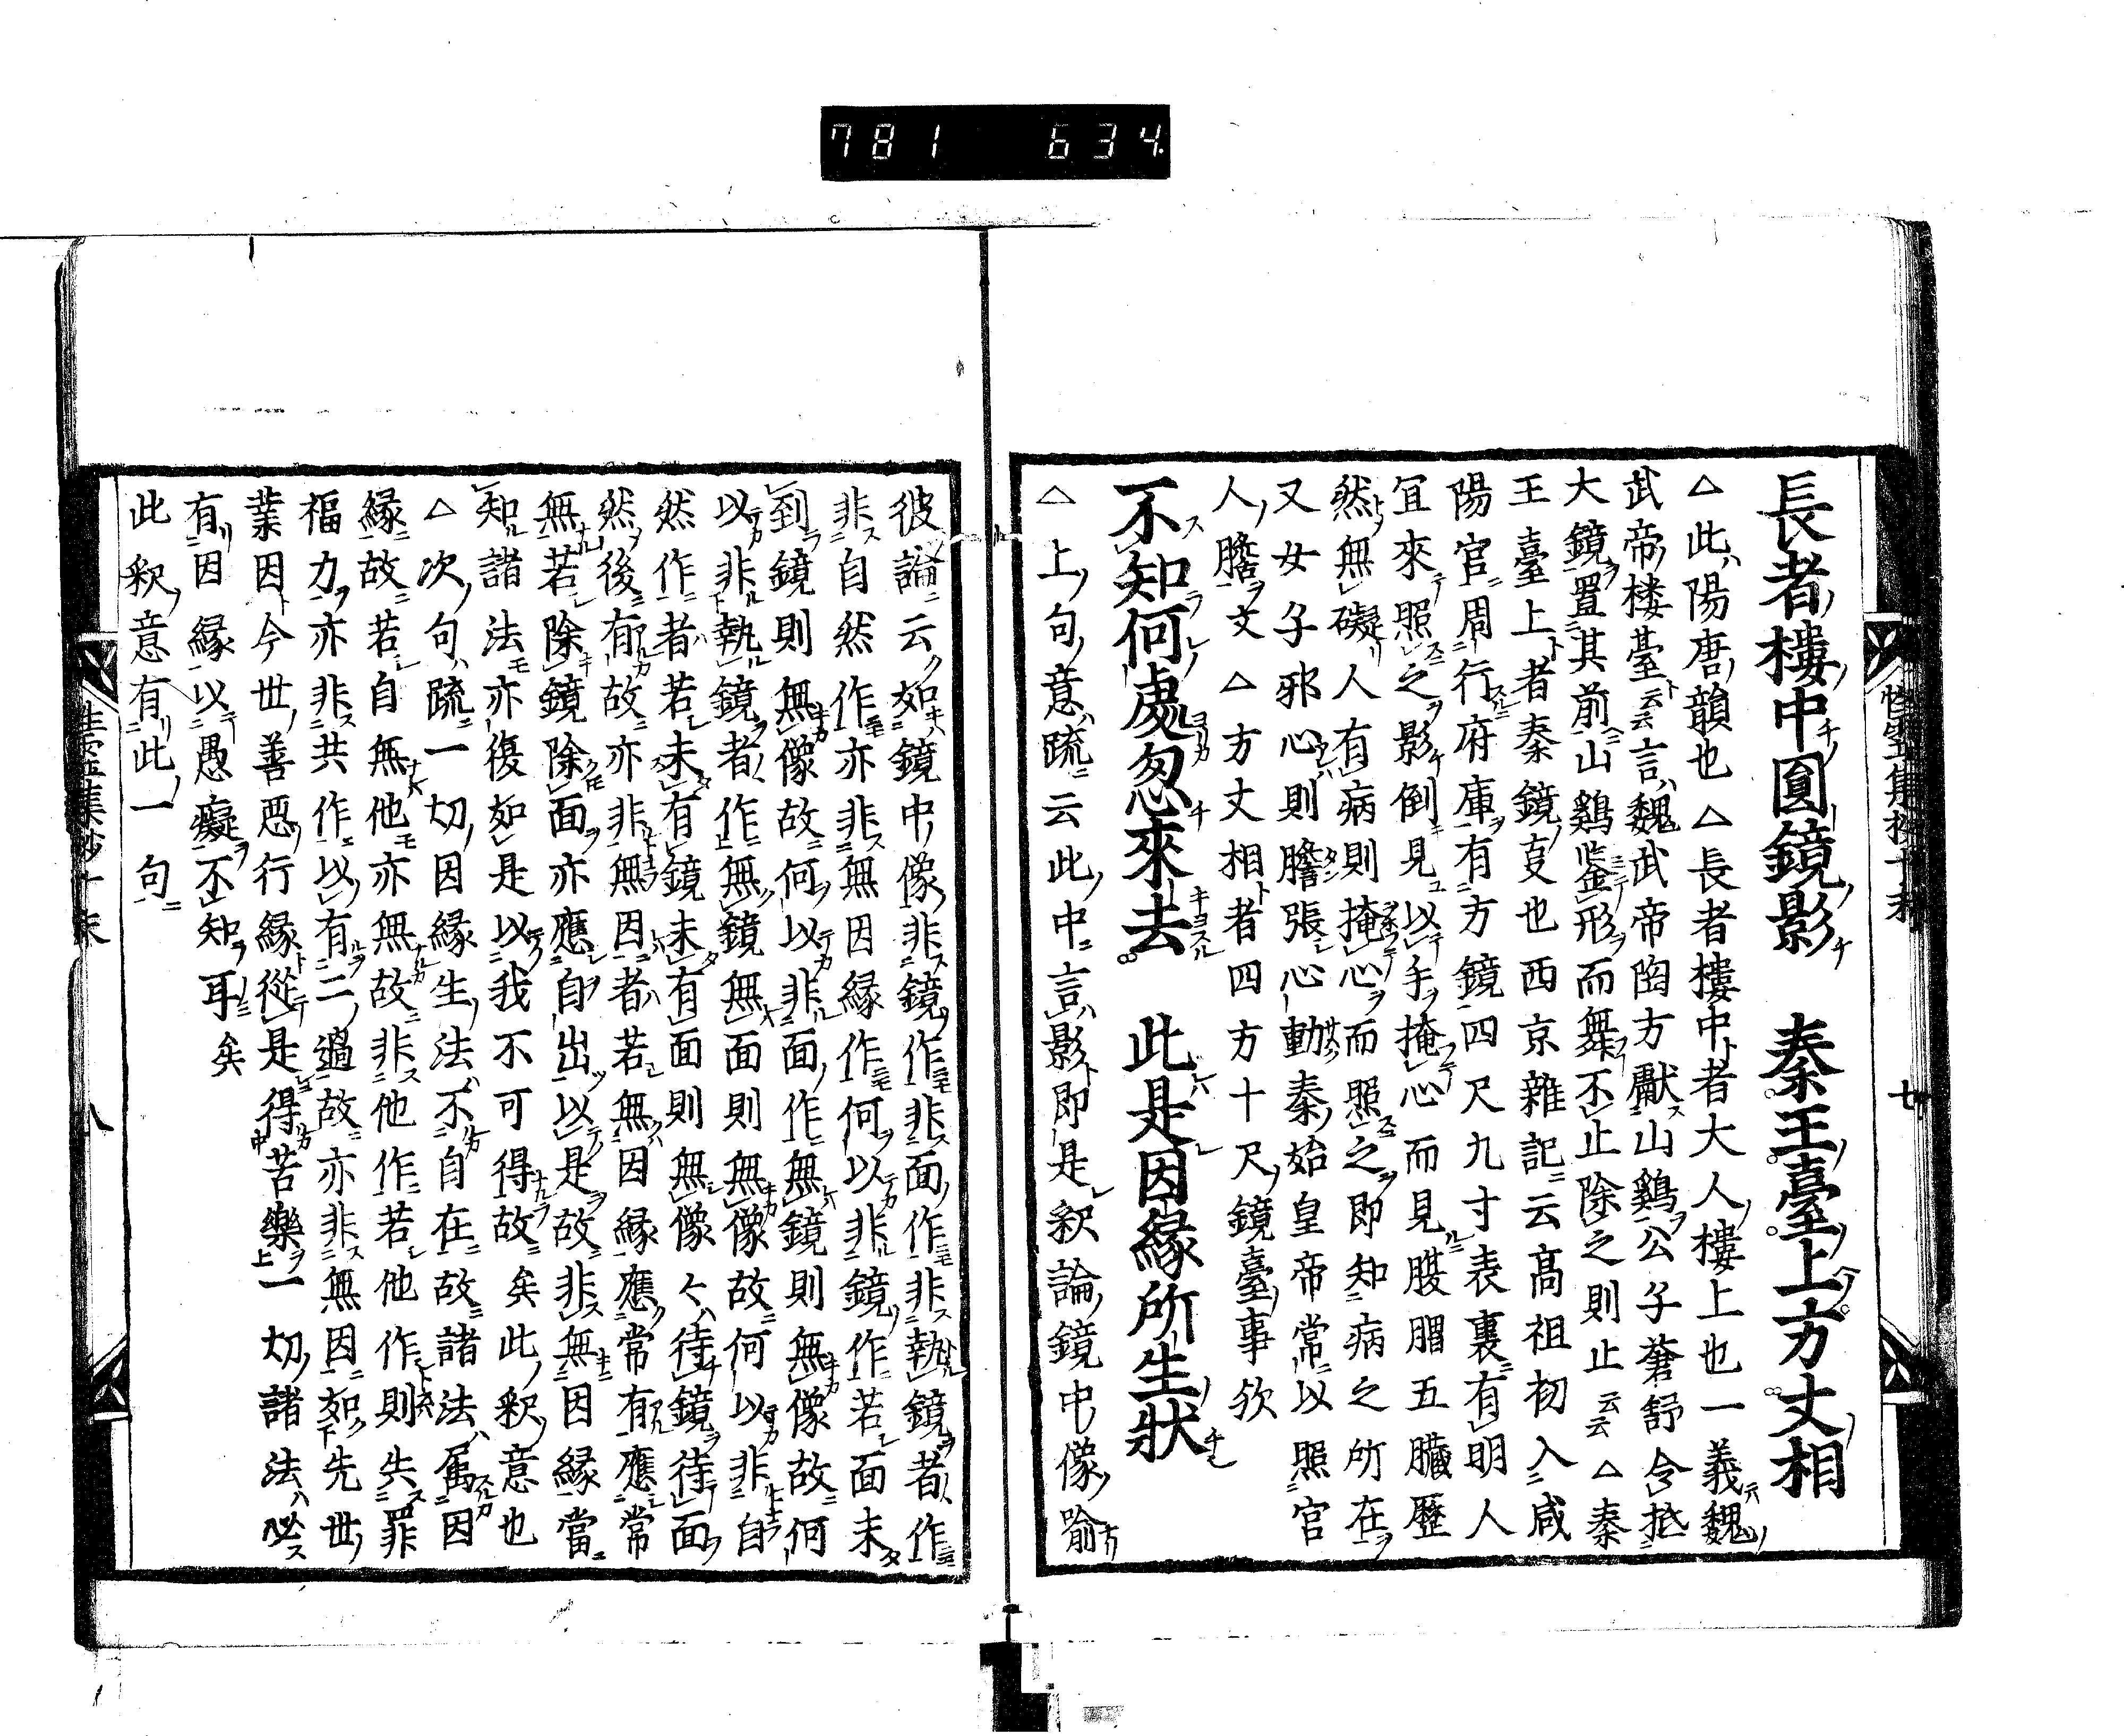 781 634
長者樓中圓鏡影 秦王臺上方丈相
△此陽唐韻也△長者樓中者大人樓上也一義魏
武帝樓臺云云言魏武帝南方獻山鷄公子蒼舒令
大鏡置其前山鷄鑒形而舞不止除之則止云云△秦
王臺上者秦鏡㕝也西京雜記云髙祖初入咸
陽宮周行府庫有方鏡四尺九寸表裏有明人
直來照之影倒見以手掩心而見腹胃五臟歷
然無礙人有病則掩心而照之即知病之所在
又女子邪心則膽張心動秦始皇帝常以照宮
人膽文△方丈相者四方十尺鏡臺事欤
不知何處忽來去 此是因緣所生狀
△上句意䟽云此中言影即是釈論鏡中像喻
彼論云如鏡中像非鏡作非面作非執鏡者作
非自然作亦非無因緣作何以非鏡作若面未
到鏡則無像故何以非面作無鏡則無像故何
以非執鏡者作無鏡無面則無像故何以非自
然作者若未有鏡未有面則無像々待鏡待面
然後有故亦非無因者若無因緣應常有應常
無若除鏡除面亦應自出以是故非無因緣當
知諸法亦復如是以我不可得故矣此釈意也
△次句䟽一切因緣生法不自在故諸法属因
緣故若自無他亦無故非他作若他作則失罪
福力亦非共作以有二過故亦非無因如先世
業因今世善惡行緣從是得苦樂一切諸法必
有因緣以愚癡不知耳矣
此釈意有此一句
七
八